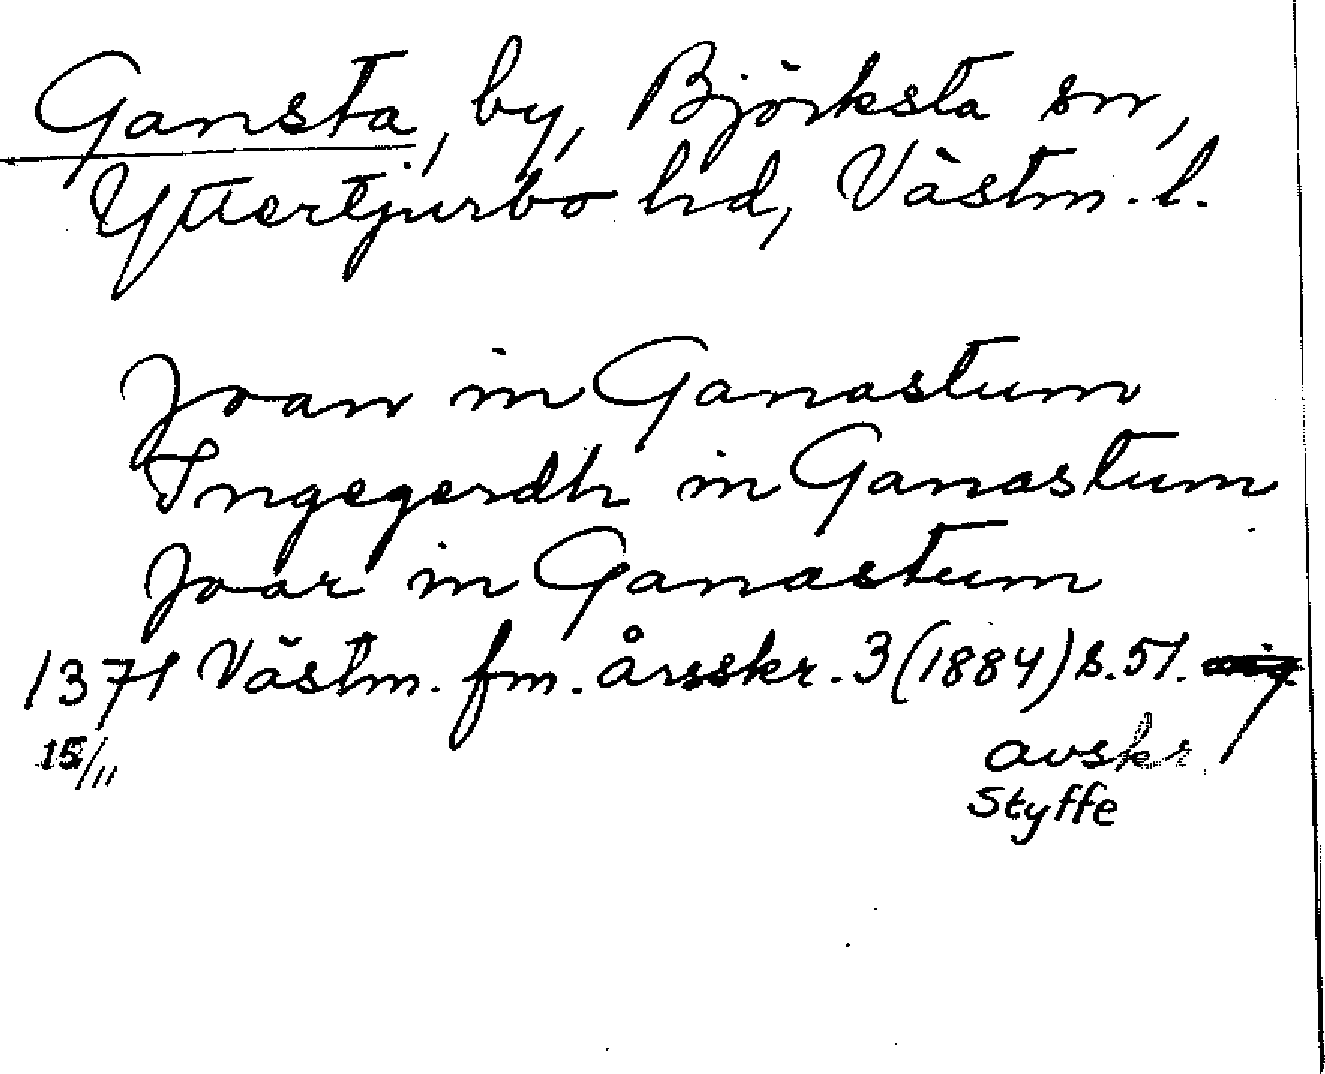 Gansta, by, Björksta sn,
Yttertjurbo hd, Västm. l.
Joan in Ganastum
Ingegerdh in Ganastum
Joar in Ganastum
1371 Västm. fm. årsskr. 3 (1884) s. 51.
15/11 avskr.
Styffe